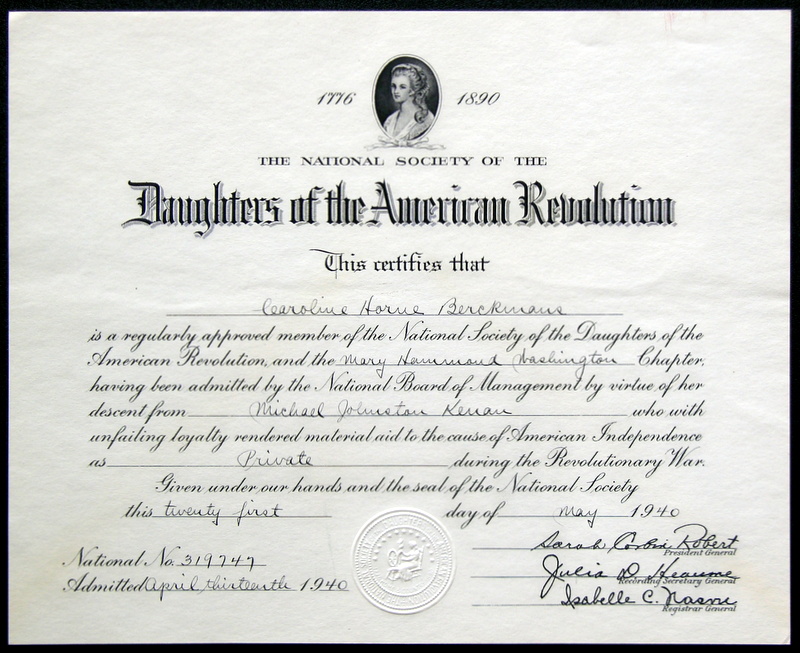 1776 1890
THE NATIONAL SOCIETY OF THE
Daughters of the American Revolution
This certifies that
Caroline Horne Berckmans
is a regularly approved member of the National Society of the Daughters of the
American Revolution, and the Mary Hammond Washington Chapter,
having been admitted by the National Board of Management by virtue of her
descent from Michael Johnston Kenan who with
unfailing loyalty rendered material aid to the cause of American Independence
as Private during the Revolutionary War.
Given under our hands and the seal of the National Society
this twenty first day of May 1940
Sarah Corbin Robert
President General
National No. 319747
Julia D.
Recording Secretary General
Admitted April thirteenth 1940
Isabelle C. Nason
Registrar General